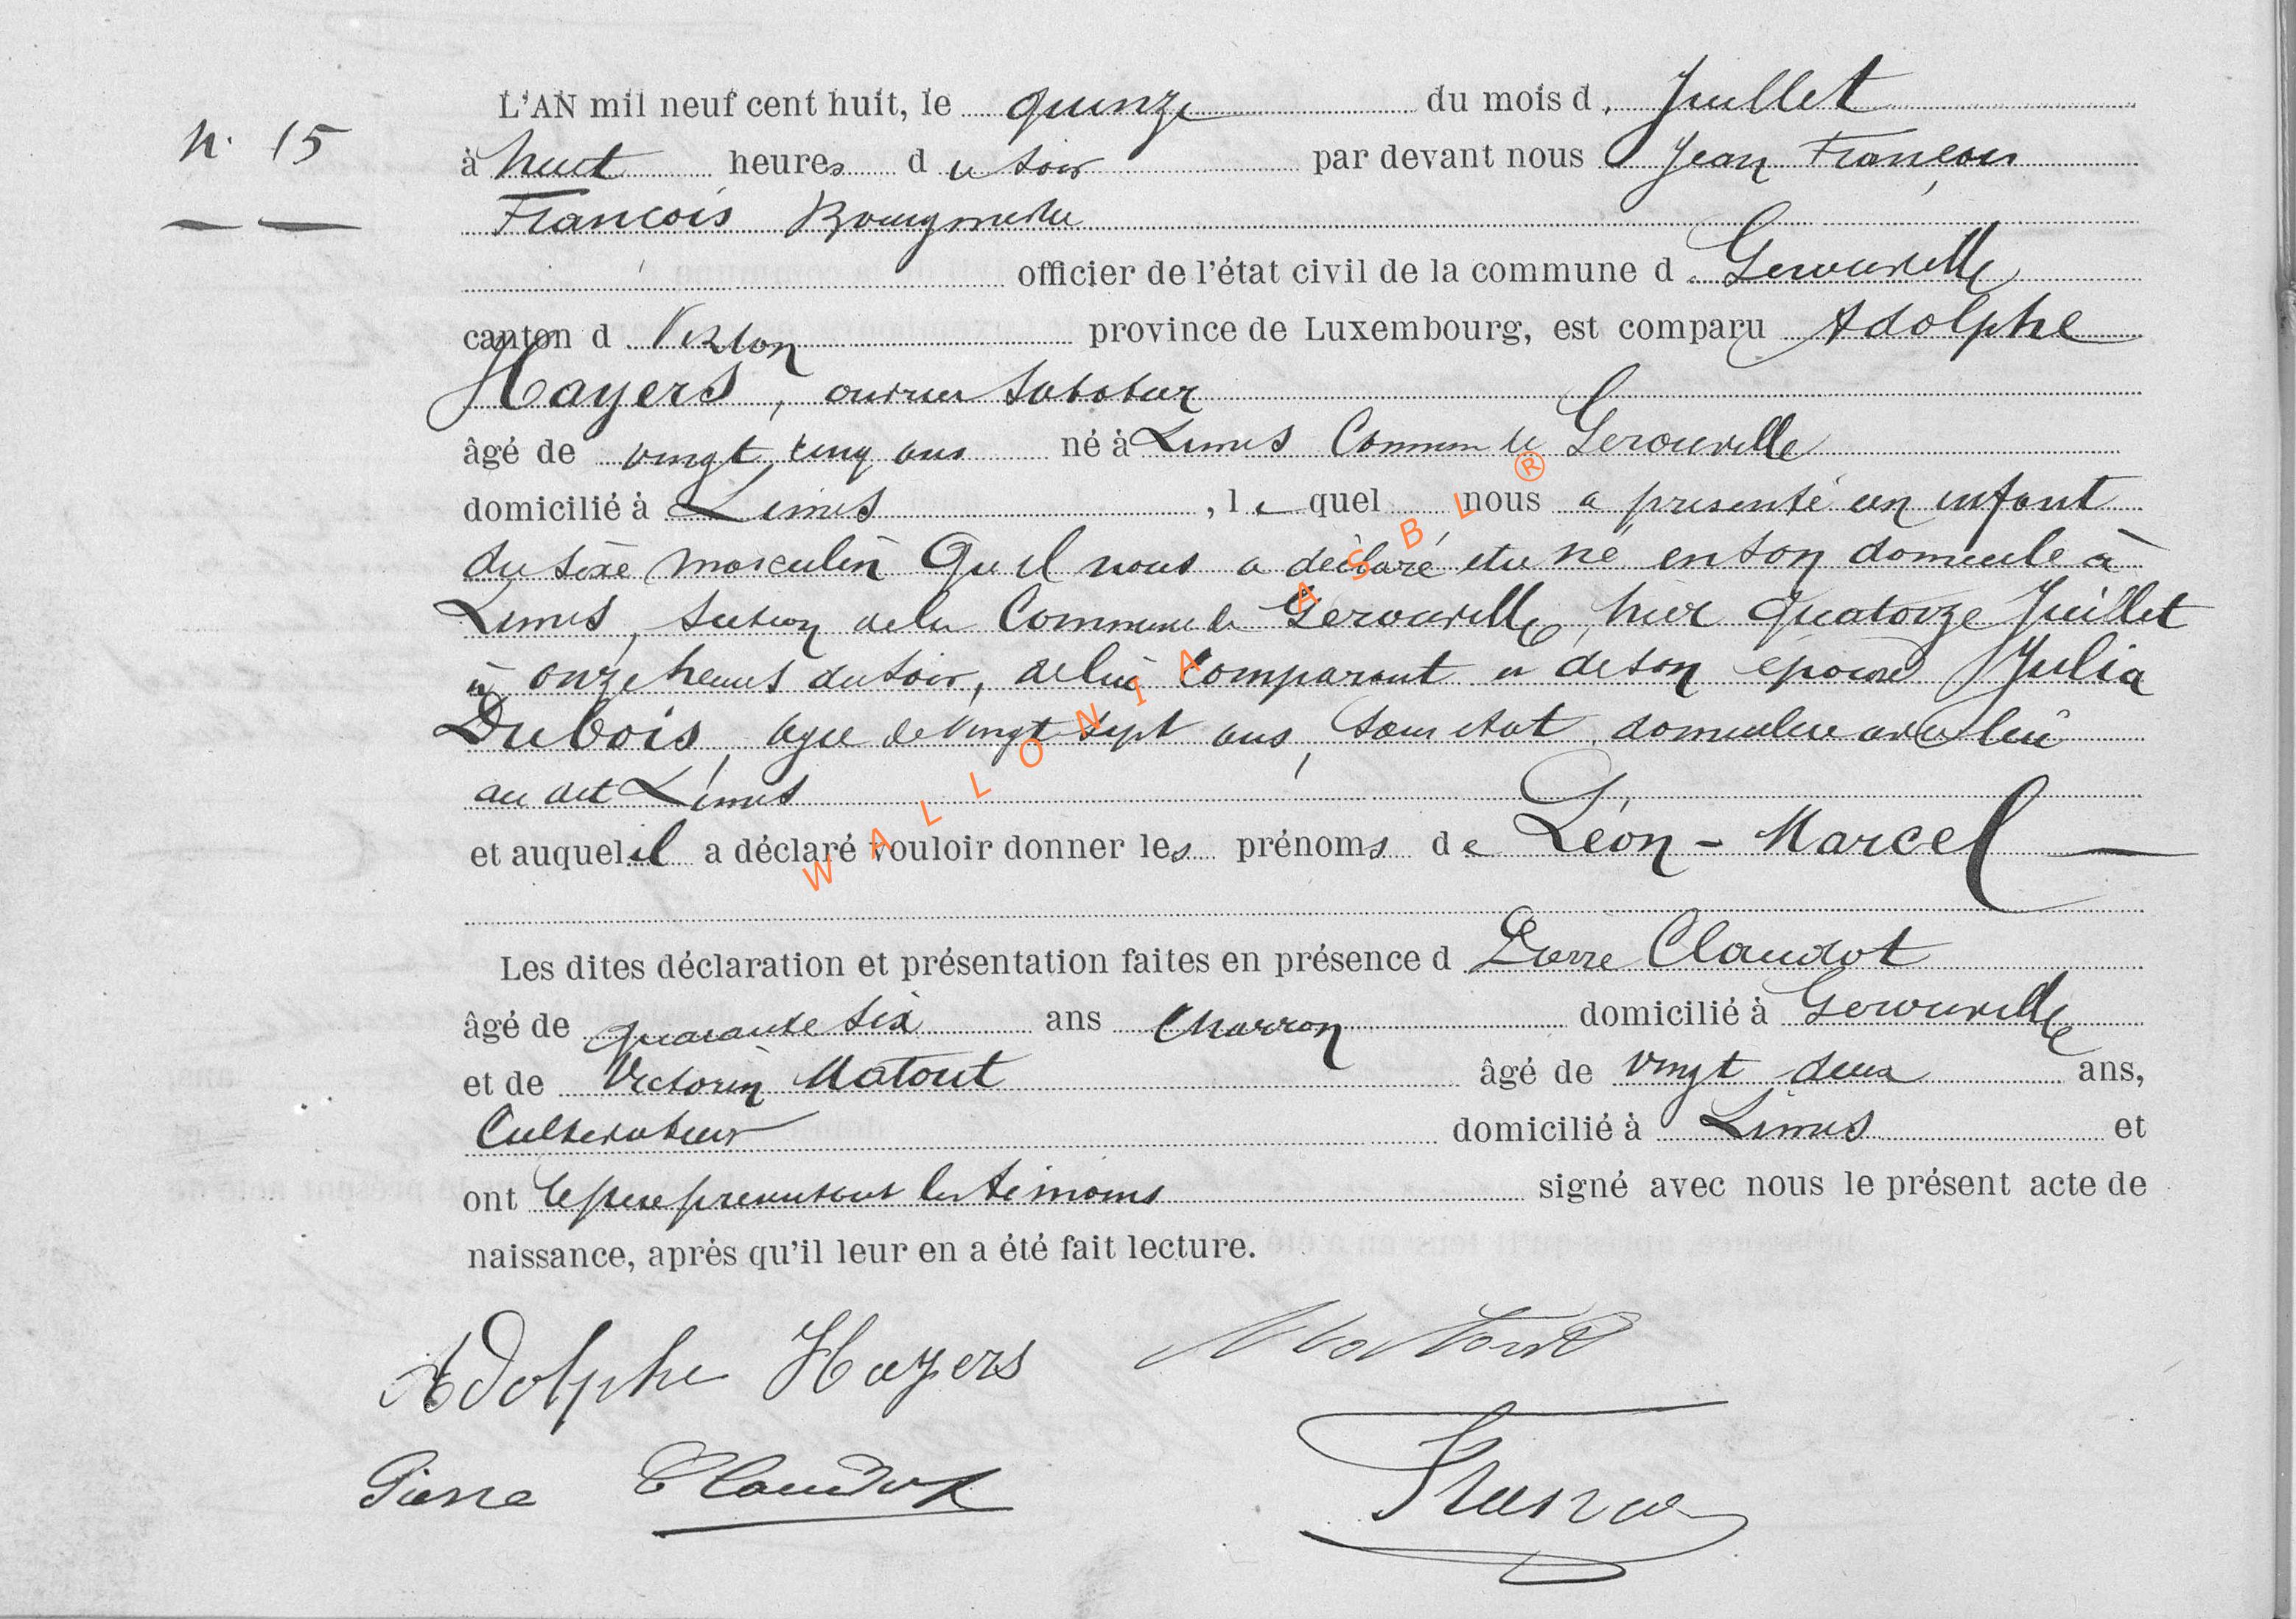 L'AN mil neuf cent huit, le quinze du mois d. Juillet
N. 15
à huit heures du soir par devant nous Jean François
François Bourgmestre
officier de l'état civil de la commune d. Gerouville
canton d Virton province de Luxembourg, est comparu Adolphe
Hayers, ouvrier sabotier
âgé de vingt cinq ans né à Limes Commune de Gerouville
domicilié à Limes, le quel nous a présenté un enfant
du sexe masculin Qu'il nous a déclaré être né en son domicile à
Limes, section de la Commune de Gerouville, hier quatorze Juillet
à onze heures du soir, de lui comparant et de son épouse Julia
Dubois, agée de vingt-sept ans, sans état, domiciliée avec lui
au dit Limes
et auquel il a déclaré vouloir donner les prénoms de Léon - Marcel
Les dites déclaration et présentation faites en présence d Pierre Claudot
âgé de quarante six ans charron domicilié à Gerouville
et de Victorin Matout âgé de vingt deux ans,
Cultivateur domicilié à Limes et
ont le père présentant les témoins signé avec nous le présent acte de
naissance, après qu'il leur en a été fait lecture.
Adolphe Hayers Matout
Pierre Claudot
WALLONIA ASBL ®